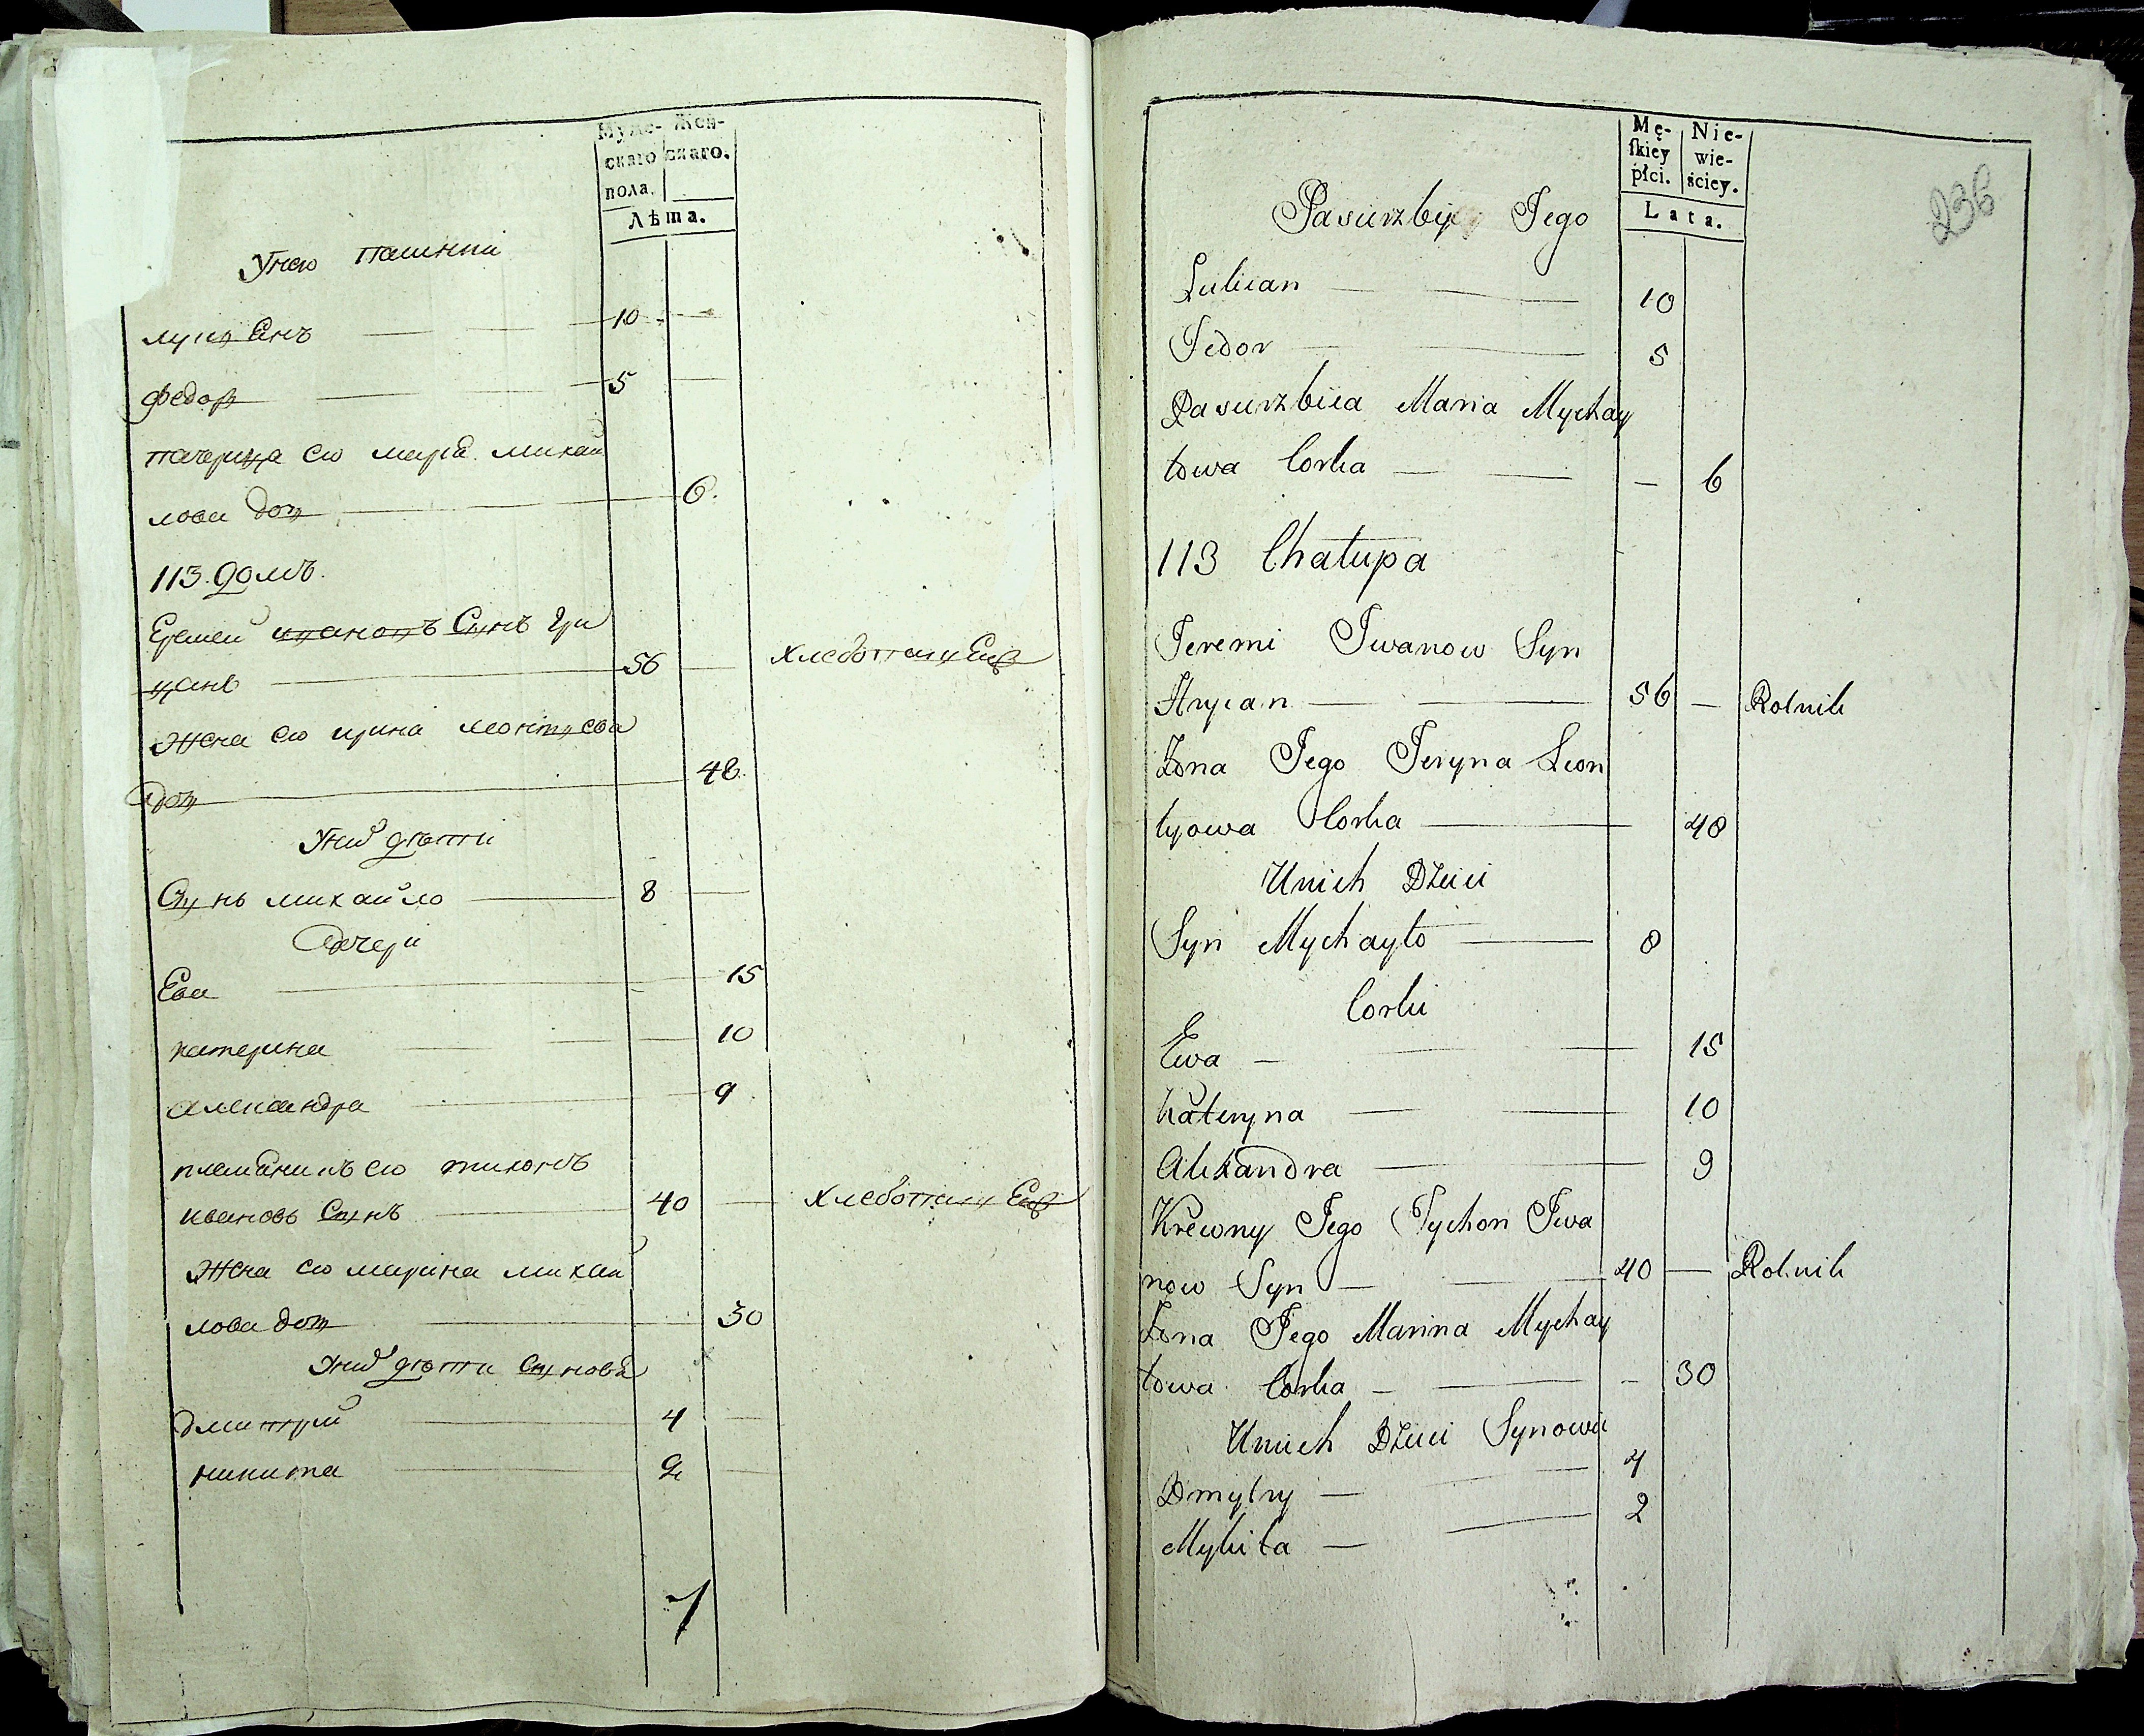 Муже-
скаго
пола.
Жен-
скаго.
Лѣта.
У него
10
федор 5
михай
лова доч 6.
113. домъ.
Еремей ивановъ Сынъ Гри
цанъ 56
Жена его ирина леонтиева
доч 48.
У них дѣтти
Сынь михайло 8
дочери
Ева 15
катерина 10
александра 9
племеникъ его тихонъ
ивановъ Сынъ 40
Жена его марина михай
лова доч 30
У них дѣтти Сынова
дмиттрий 4
никита 2
Mę-
skiey
płci.
Nie-
wie-
ściey.
Lata.
236
Pasierzbicy Jego
Lukian 10
Fedor 5
Pasierzbica Maria Mychay
łowa Corka — 6
113 Chałupa
Jeremi Iwanow Syn
Hrycan 56 — Rolnik
Żona Jego Jeryna Leon
tyowa Corka 48
Unich Dzieci
Syn Mychayło 8
Corki
Ewa 15
Kateryna 10
Alexandra 9
Krewny Jego Tychon Iwa
now Syn 40 — Rolnik
Żona Jego Marina Mychay
łowa Corka — 30
Unich Dzieci Synowie
Dmytry 4
Mykita 2